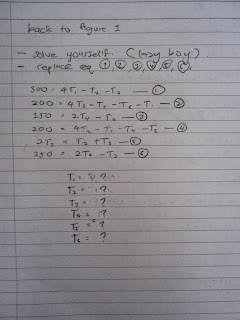 back to figure 1
- solve yourself. (lazy boy)
- replace eq ① ② ③ ④ ⑤ ⑥
300 = 4T₁ - T₂ - T₃ — ①
200 = 4T₃ - T₅ - T₁ — ②
250 = 2T₄ - T₂ — ③
200 = 4T₂ - T₁ - T₄ — ④
2T₅ = T₂ + T₃ — ⑤
250 = 2T₆ - T₃ — ⑥
T₁ = ?
T₂ = ?
T₃ = ?
T₄ = ?
T₅ = ?
T₆ = ?